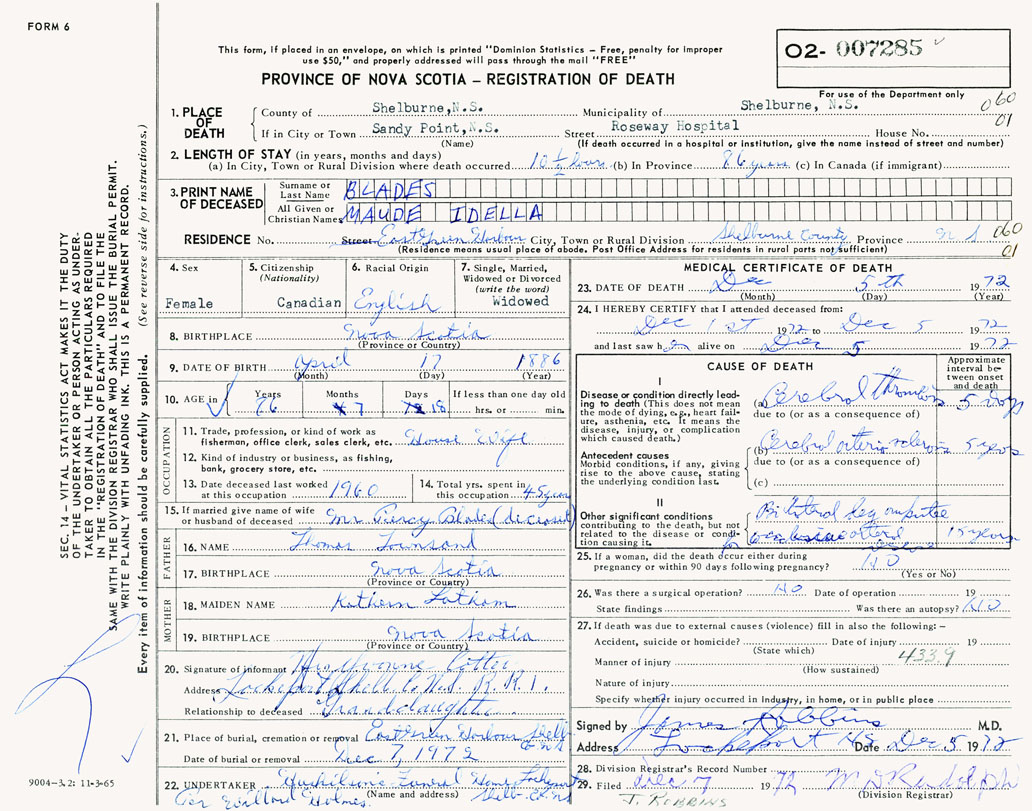 FORM 6
This form, if placed in an envelope, on which is printed "Dominion Statistics – Free, penalty for improper
use $50," and properly addressed will pass through the mail "FREE"
PROVINCE OF NOVA SCOTIA – REGISTRATION OF DEATH
02- 007285
For use of the Department only
060
01
1. PLACE OF DEATH
County of Shelburne, N.S. Municipality of Shelburne, N.S.
If in City or Town Sandy Point, N.S. Street Roseway Hospital House No.
(Name) (If death occurred in a hospital or institution, give the name instead of street and number)
2. LENGTH OF STAY (in years, months and days)
(a) In City, Town or Rural Division where death occurred 10½ hours (b) In Province 86 years (c) In Canada (if immigrant)
3. PRINT NAME OF DECEASED
Surname or Last Name BLADES
All Given or Christian Names MAUDE IDELLA
RESIDENCE No. Street East Green Harbour City, Town or Rural Division Shelburne County Province N S
060
01
(Residence means usual place of abode. Post Office Address for residents in rural parts not sufficient)
4. Sex
Female
5. Citizenship
(Nationality)
Canadian
6. Racial Origin
English
7. Single, Married,
Widowed or Divorced
(write the word)
Widowed
8. BIRTHPLACE Nova Scotia
(Province or Country)
9. DATE OF BIRTH April 17 1886
(Month) (Day) (Year)
10. AGE in
Years
Months 7
Days 18
If less than one day old
hrs. or min.
OCCUPATION
11. Trade, profession, or kind of work as
fisherman, office clerk, sales clerk, etc. House Wife
12. Kind of industry or business, as fishing,
bank, grocery store, etc.
13. Date deceased last worked
at this occupation 1960
14. Total yrs. spent in
this occupation 45 years
15. If married give name of wife
or husband of deceased Mr Percy Blades (deceased)
FATHER
16. NAME Thomas Townsend
17. BIRTHPLACE Nova Scotia
(Province or Country)
MOTHER
18. MAIDEN NAME
19. BIRTHPLACE Nova Scotia
(Province or Country)
20. Signature of informant Mrs Yvonne Cotter
Address Lockeport Shell. Co. N.S. R.R.1.
Relationship to deceased Granddaughter
21. Place of burial, cremation or removal East Green Harbour Shelb
Co N S
Date of burial or removal Dec 7, 1972
22. UNDERTAKER Funeral Home Lockeport
(Name and address) Shelb. Co. N.S
Per Willard Holmes.
MEDICAL CERTIFICATE OF DEATH
23. DATE OF DEATH Dec 5th 1972
(Month) (Day) (Year)
24. I HEREBY CERTIFY that I attended deceased from:
Dec 1st 1972 to Dec 5 1972
and last saw her alive on Dec 5 1972
CAUSE OF DEATH
Approximate
interval be-
tween onset
and death
I
Disease or condition directly lead-
ing to death (This does not mean
the mode of dying, e.g., heart fail-
ure, asthenia, etc. It means the
disease, injury, or complication
which caused death.)
(a) Cerebral thrombosis 5 days
due to (or as a consequence of)
Antecedent causes
Morbid conditions, if any, giving
rise to the above cause, stating
the underlying condition last.
(b) Cerebral arterio sclerosis 5 years
due to (or as a consequence of)
(c)
II
Other significant conditions
contributing to the death, but not
related to the disease or condi-
tion causing it.
Bilateral leg amputee
for 15 years
25. If a woman, did the death occur either during
pregnancy or within 90 days following pregnancy? NO
(Yes or No)
26. Was there a surgical operation? NO Date of operation 19
State findings Was there an autopsy? NO
27. If death was due to external causes (violence) fill in also the following: –
Accident, suicide or homicide? Date of injury 19
(State which)
433.9
Manner of injury
(How sustained)
Nature of injury
Specify whether injury occurred in Industry, in home, or in public place
Signed by James Robbins M.D.
Address Lockeport NS Date Dec 5 1972
28. Division Registrar's Record Number
29. Filed Dec 7 1972 M D Rudolph
(Division Registrar)
J. ROBBINS
SEC. 14 – VITAL STATISTICS ACT MAKES IT THE DUTY
OF THE UNDERTAKER OR PERSON ACTING AS UNDER-
TAKER TO OBTAIN ALL THE PARTICULARS REQUIRED
IN THE "REGISTRATION OF DEATH" AND TO FILE THE
SAME WITH THE DIVISION REGISTRAR WHO SHALL ISSUE THE BURIAL PERMIT.
WRITE PLAINLY WITH UNFADING INK. THIS IS A PERMANENT RECORD.
Every item of information should be carefully supplied. (See reverse side for instructions.)
9004-3.2: 11-3-65